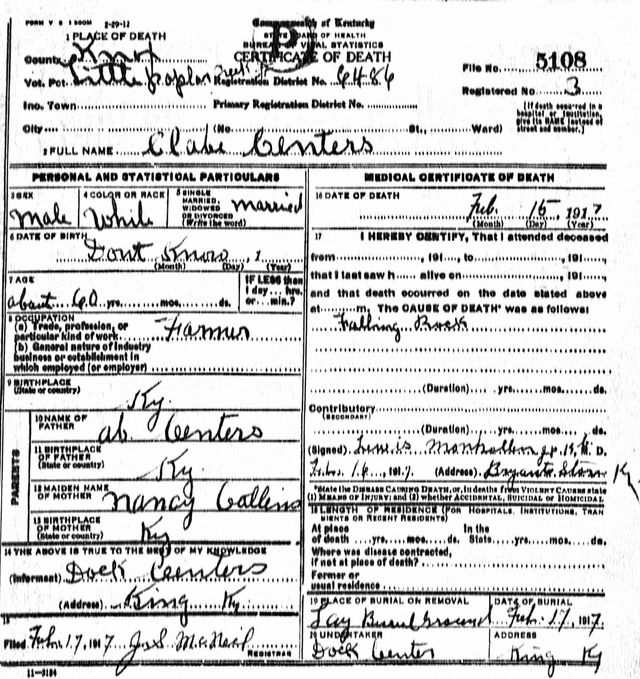 FORM V S 1 500M 2-29-12
Commonwealth of Kentucky
STATE BOARD OF HEALTH
BUREAU OF VITAL STATISTICS
CERTIFICATE OF DEATH
1 PLACE OF DEATH
County Knox
Vot. Pct. Little Poplar Creek Registration District No. 6486
File No. 5108
Registered No. 3
Inc. Town Primary Registration District No.
[If death occurred in a hospital or institution, give its NAME instead of street and number.]
City (No. St., Ward)
2 FULL NAME Clabe Centers
PERSONAL AND STATISTICAL PARTICULARS
3 SEX Male
4 COLOR OR RACE White
5 SINGLE MARRIED, WIDOWED OR DIVORCED (Write the word) Married
6 DATE OF BIRTH Dont Know, 1
(Month) (Day) (Year)
7 AGE about 60 yrs. mos. ds.
IF LESS than 1 day... hrs. or... min.?
8 OCCUPATION
(a) Trade, profession, or particular kind of work Farmer
(b) General nature of industry business or establishment in which employed (or employer)
9 BIRTHPLACE
(State or country) Ky.
PARENTS
10 NAME OF FATHER ab Centers
11 BIRTHPLACE OF FATHER
(State or country) Ky
12 MAIDEN NAME OF MOTHER Nancy Collins
13 BIRTHPLACE OF MOTHER
(State or country) Ky
14 THE ABOVE IS TRUE TO THE BEST OF MY KNOWLEDGE
(Informant) Dock Centers
(Address) King Ky
15
Filed Feb. 17, 1917 Jas S. McNeil
REGISTRAR
11-3184
MEDICAL CERTIFICATE OF DEATH
16 DATE OF DEATH Feb. 15 1917
(Month) (Day) (Year)
17 I HEREBY CERTIFY, That I attended deceased
from , 191 , to , 191 ,
that I last saw h alive on , 191 ,
and that death occurred on the date stated above
at m. The CAUSE OF DEATH* was as follows:
Falling Rock
(Duration) yrs. mos. ds.
Contributory
(SECONDARY)
(Duration) yrs. mos. ds.
(Signed) M. D.
Feb. 16, 1917. (Address) Bryants Store Ky.
*State the DISEASE CAUSING DEATH, or, in deaths from VIOLENT CAUSES state (1) MEANS OF INJURY; and (2) whether ACCIDENTAL, SUICIDAL or HOMICIDAL
18 LENGTH OF RESIDENCE (FOR HOSPITALS, INSTITUTIONS, TRANSIENTS OR RECENT RESIDENTS)
At place of death yrs. mos. ds. In the State yrs. mos. ds.
Where was disease contracted, if not at place of death?
Former or usual residence
19 PLACE OF BURIAL OR REMOVAL Lay Burial Ground
DATE OF BURIAL Feb. 17, 1917.
20 UNDERTAKER Dock Center
ADDRESS King Ky